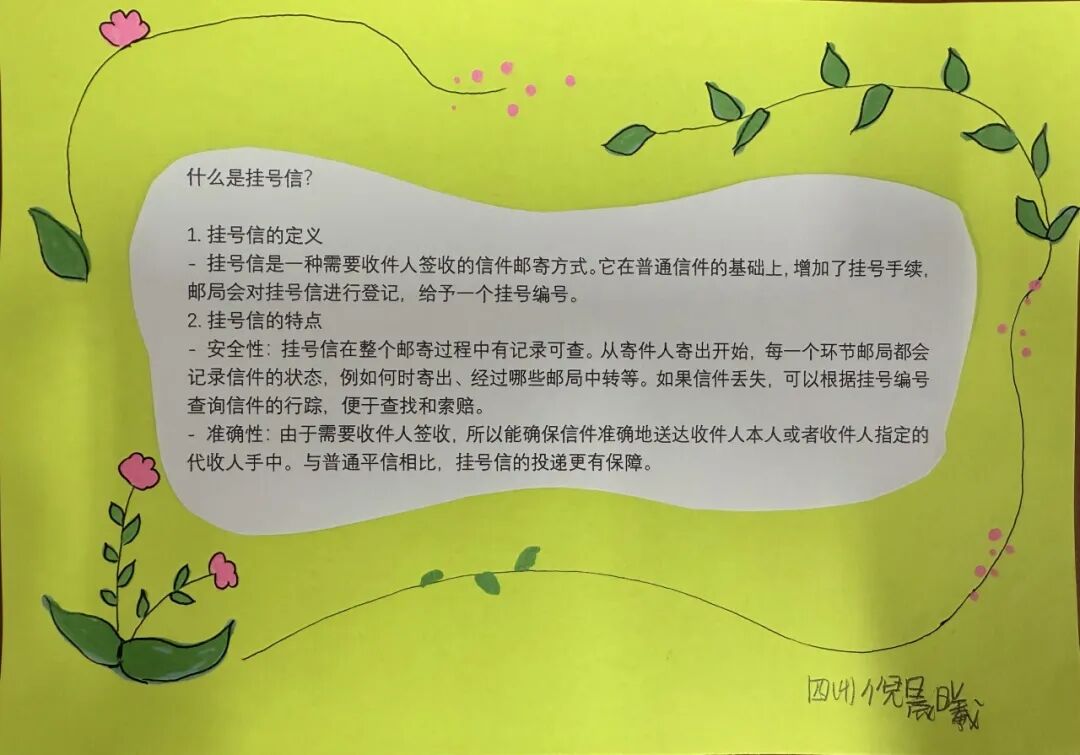 什么是挂号信?
1. 挂号信的定义
- 挂号信是一种需要收件人签收的信件邮寄方式。它在普通信件的基础上,增加了挂号手续,
邮局会对挂号信进行登记,给予一个挂号编号。
2. 挂号信的特点
- 安全性:挂号信在整个邮寄过程中有记录可查。从寄件人寄出开始,每一个环节邮局都会
记录信件的状态,例如何时寄出、经过哪些邮局中转等。如果信件丢失,可以根据挂号编号
查询信件的行踪,便于查找和索赔。
- 准确性:由于需要收件人签收,所以能确保信件准确地送达收件人本人或者收件人指定的
代收人手中。与普通平信相比,挂号信的投递更有保障。
倪晨曦